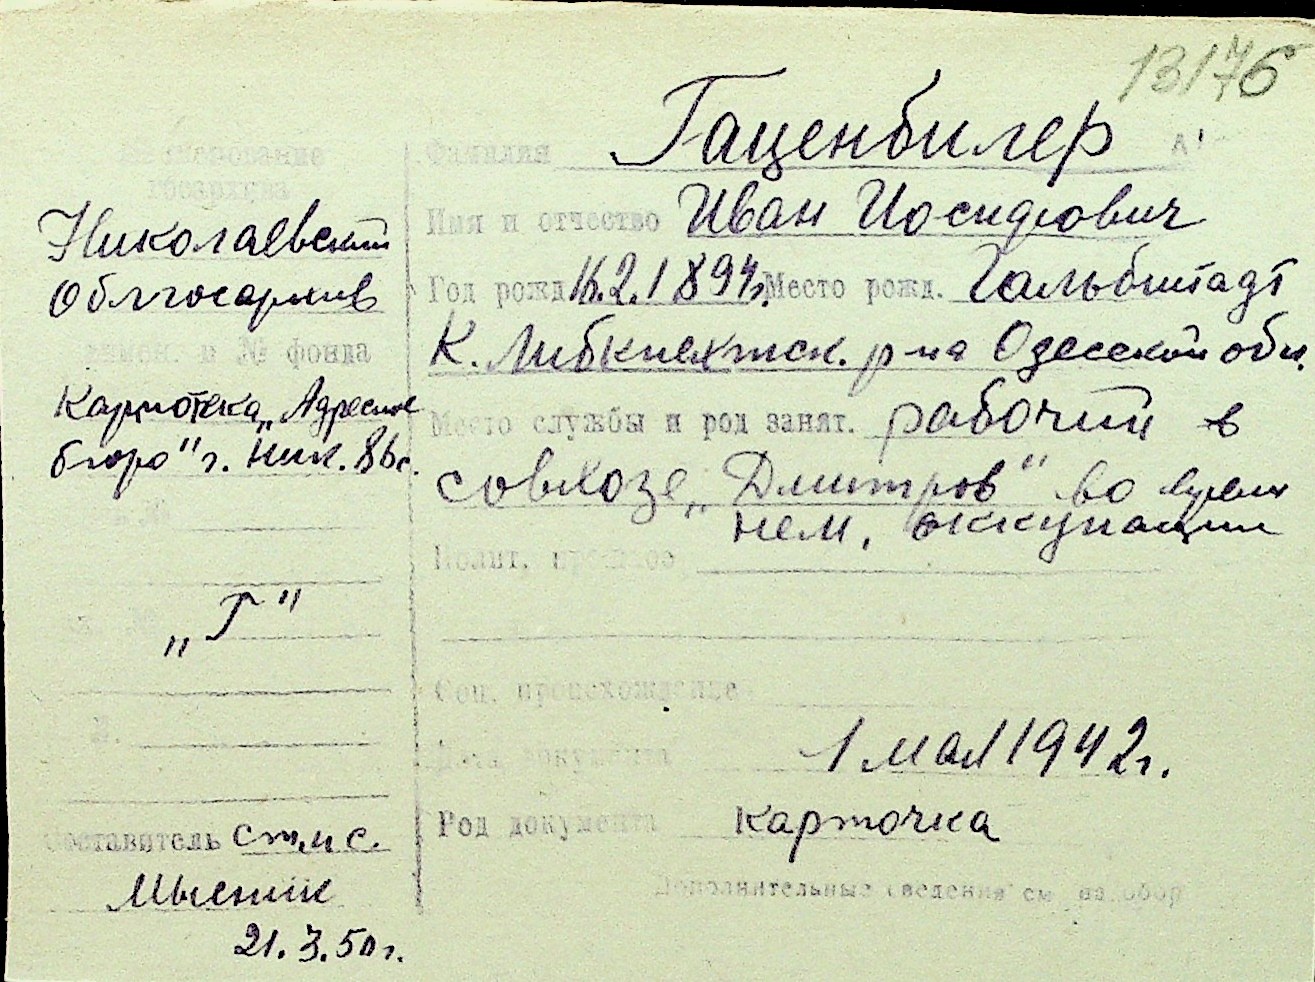 13176
Фамилия Гаценбилер
Имя и отчество Иван Иосифович
Год рожд. 16.2.1894г. Место рожд. Гальбштадт
К. Либкнехтск. р-на Одесской обл.
Место службы и род занят. рабочий в
совхозе „Дмитров" во время
нем. оккупации
Полит. прошлое
Соц. происхождение
Дата документа 1 мая 1942г.
Род документа карточка
Дополнительные сведения см на обор
Наименование
госархива
Николаевский
Облгосархив
наимен. и № фонда
Картотека „Адресное
бюро" г. Ник.
„Г"
Составитель ст. н с.
Мысник
21.3.50г.